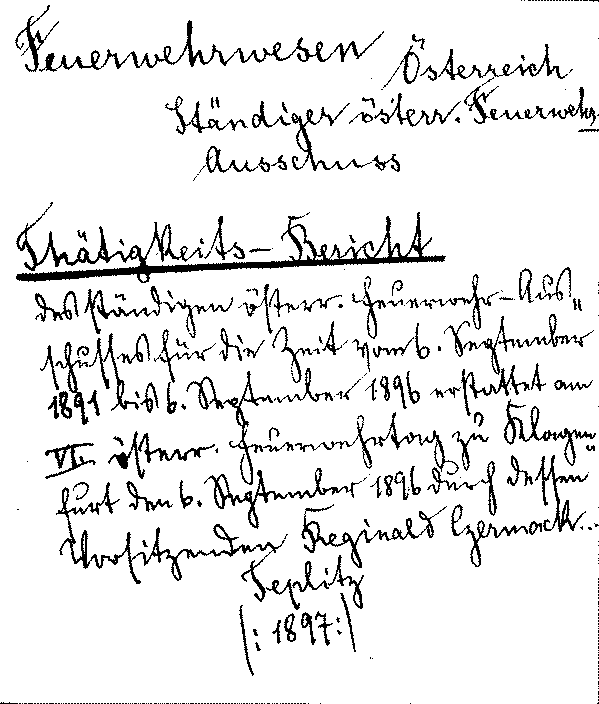 Feuerwehrwesen
Österreich
Ständiger österr. Feuerwehr
Ausschuss
Thätigkeits-Bericht
des ständigen österr. Feuerwehr-Aus„
schusses für die Zeit vom 6. September
1891 bis 6. September 1896 erstattet am
VI. österr. Feuerwehrtag zu Klagen„
furt den 6. September 1896 durch dessen
Vorsitzenden Reginald Czermack..
Teplitz
(: 1897:)